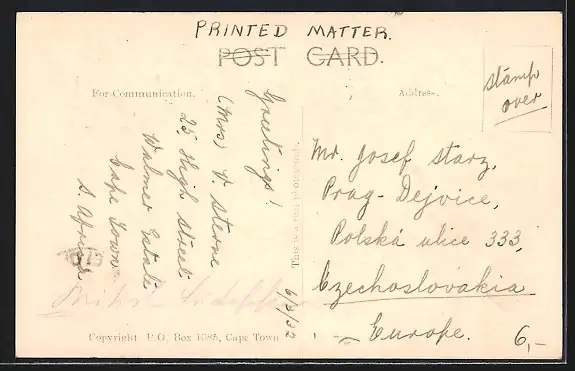 PRINTED MATTER.
POST CARD.
For Communication.
Address.
stamp
over
Greetings!
(Mrs) V. Sterne
25, High Street
Walmer Estate
Cape Town
S. Africa
6/3/32
This is a real photograph.
Mr. Josef Starz,
Prag-Dejvice,
Polská ulice 333,
Czechoslovakia
Europe.
6,-
Copyright P.O. Box 1085, Cape Town